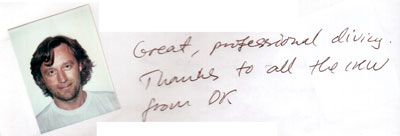 Great, professional diving.
Thanks to all the crew
from OK